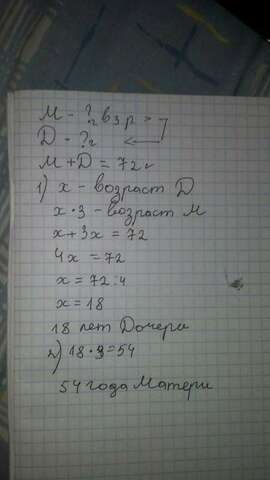 М - ?г в 3 р >
D - ?г
М + D = 72 г
1) х - возраст D
х · 3 - возраст М
х + 3х = 72
4х = 72
х = 72 : 4
х = 18
18 лет Дочери
2) 18 · 3 = 54
54 года Матери